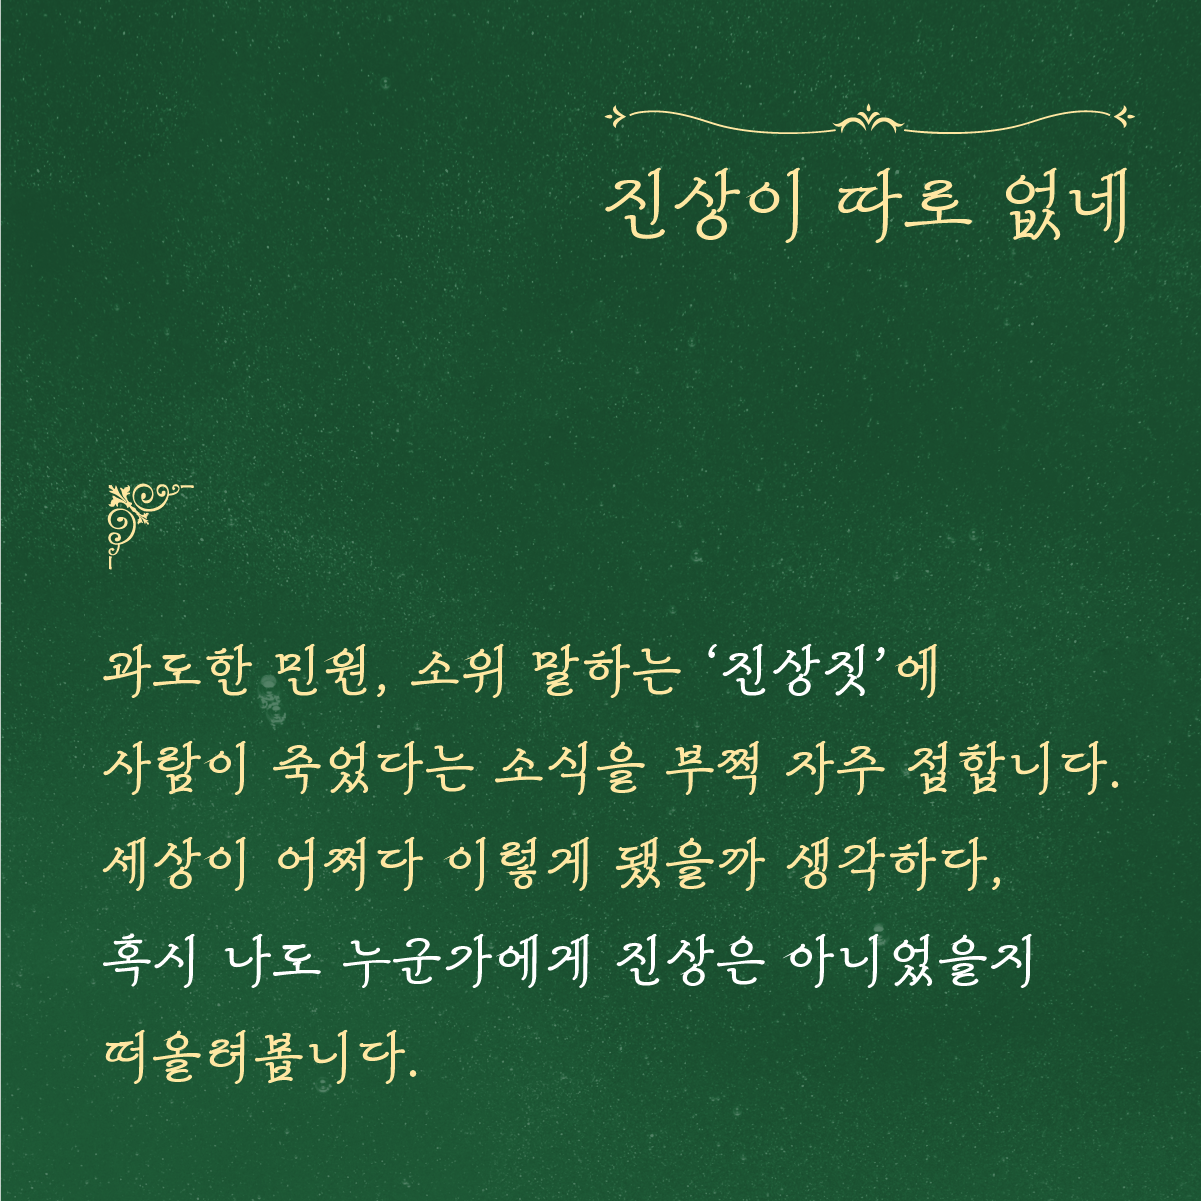 진상이 따로 없네
과도한 민원, 소위 말하는 ‘진상짓’에
사람이 죽었다는 소식을 부쩍 자주 접합니다.
세상이 어쩌다 이렇게 됐을까 생각하다,
혹시 나도 누군가에게 진상은 아니었을지
떠올려봅니다.